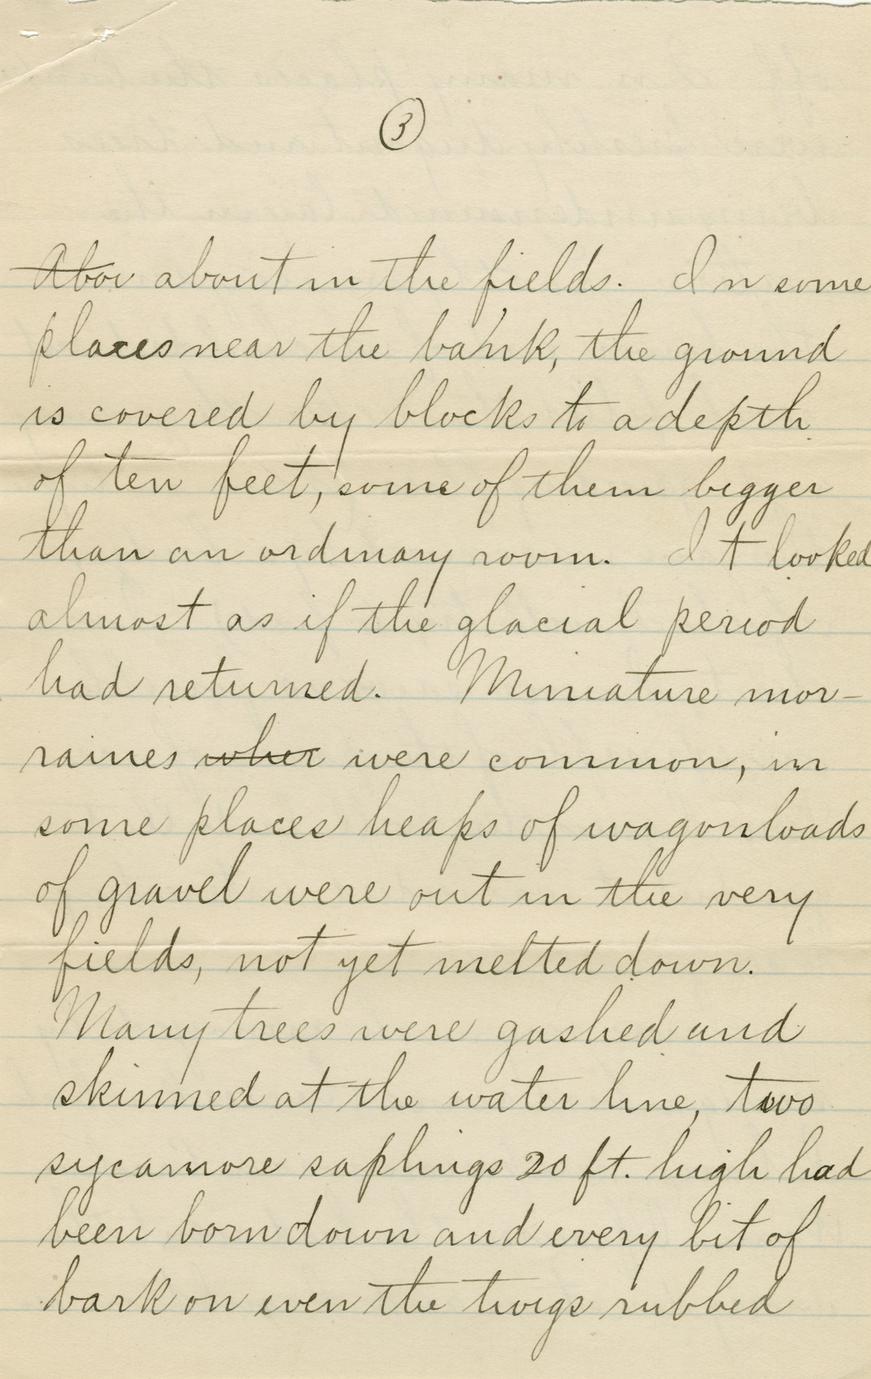 3
Abov about in the fields. In some
places near the bank, the ground
is covered by blocks to a depth
of ten feet, some of them bigger
than an ordinary room. It looked
almost as if the glacial period
had returned. Miniature mor-
raines wher were common, in
some places heaps of wagonloads
of gravel were out in the very
fields, not yet melted down.
Many trees were gashed and
skinned at the water line, two
sycamore saplings 20 ft. high had
been born down and every bit of
bark on even the twigs rubbed